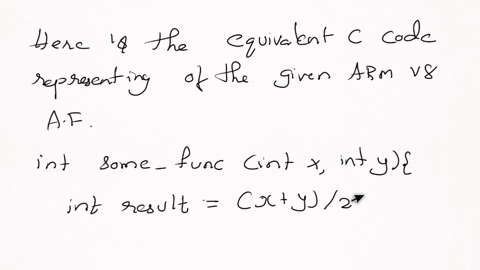 Here is the equivalent C code
representing of the given ARM V8
A.F.
int some_func (int x, int y){
int result = (x+y)/2